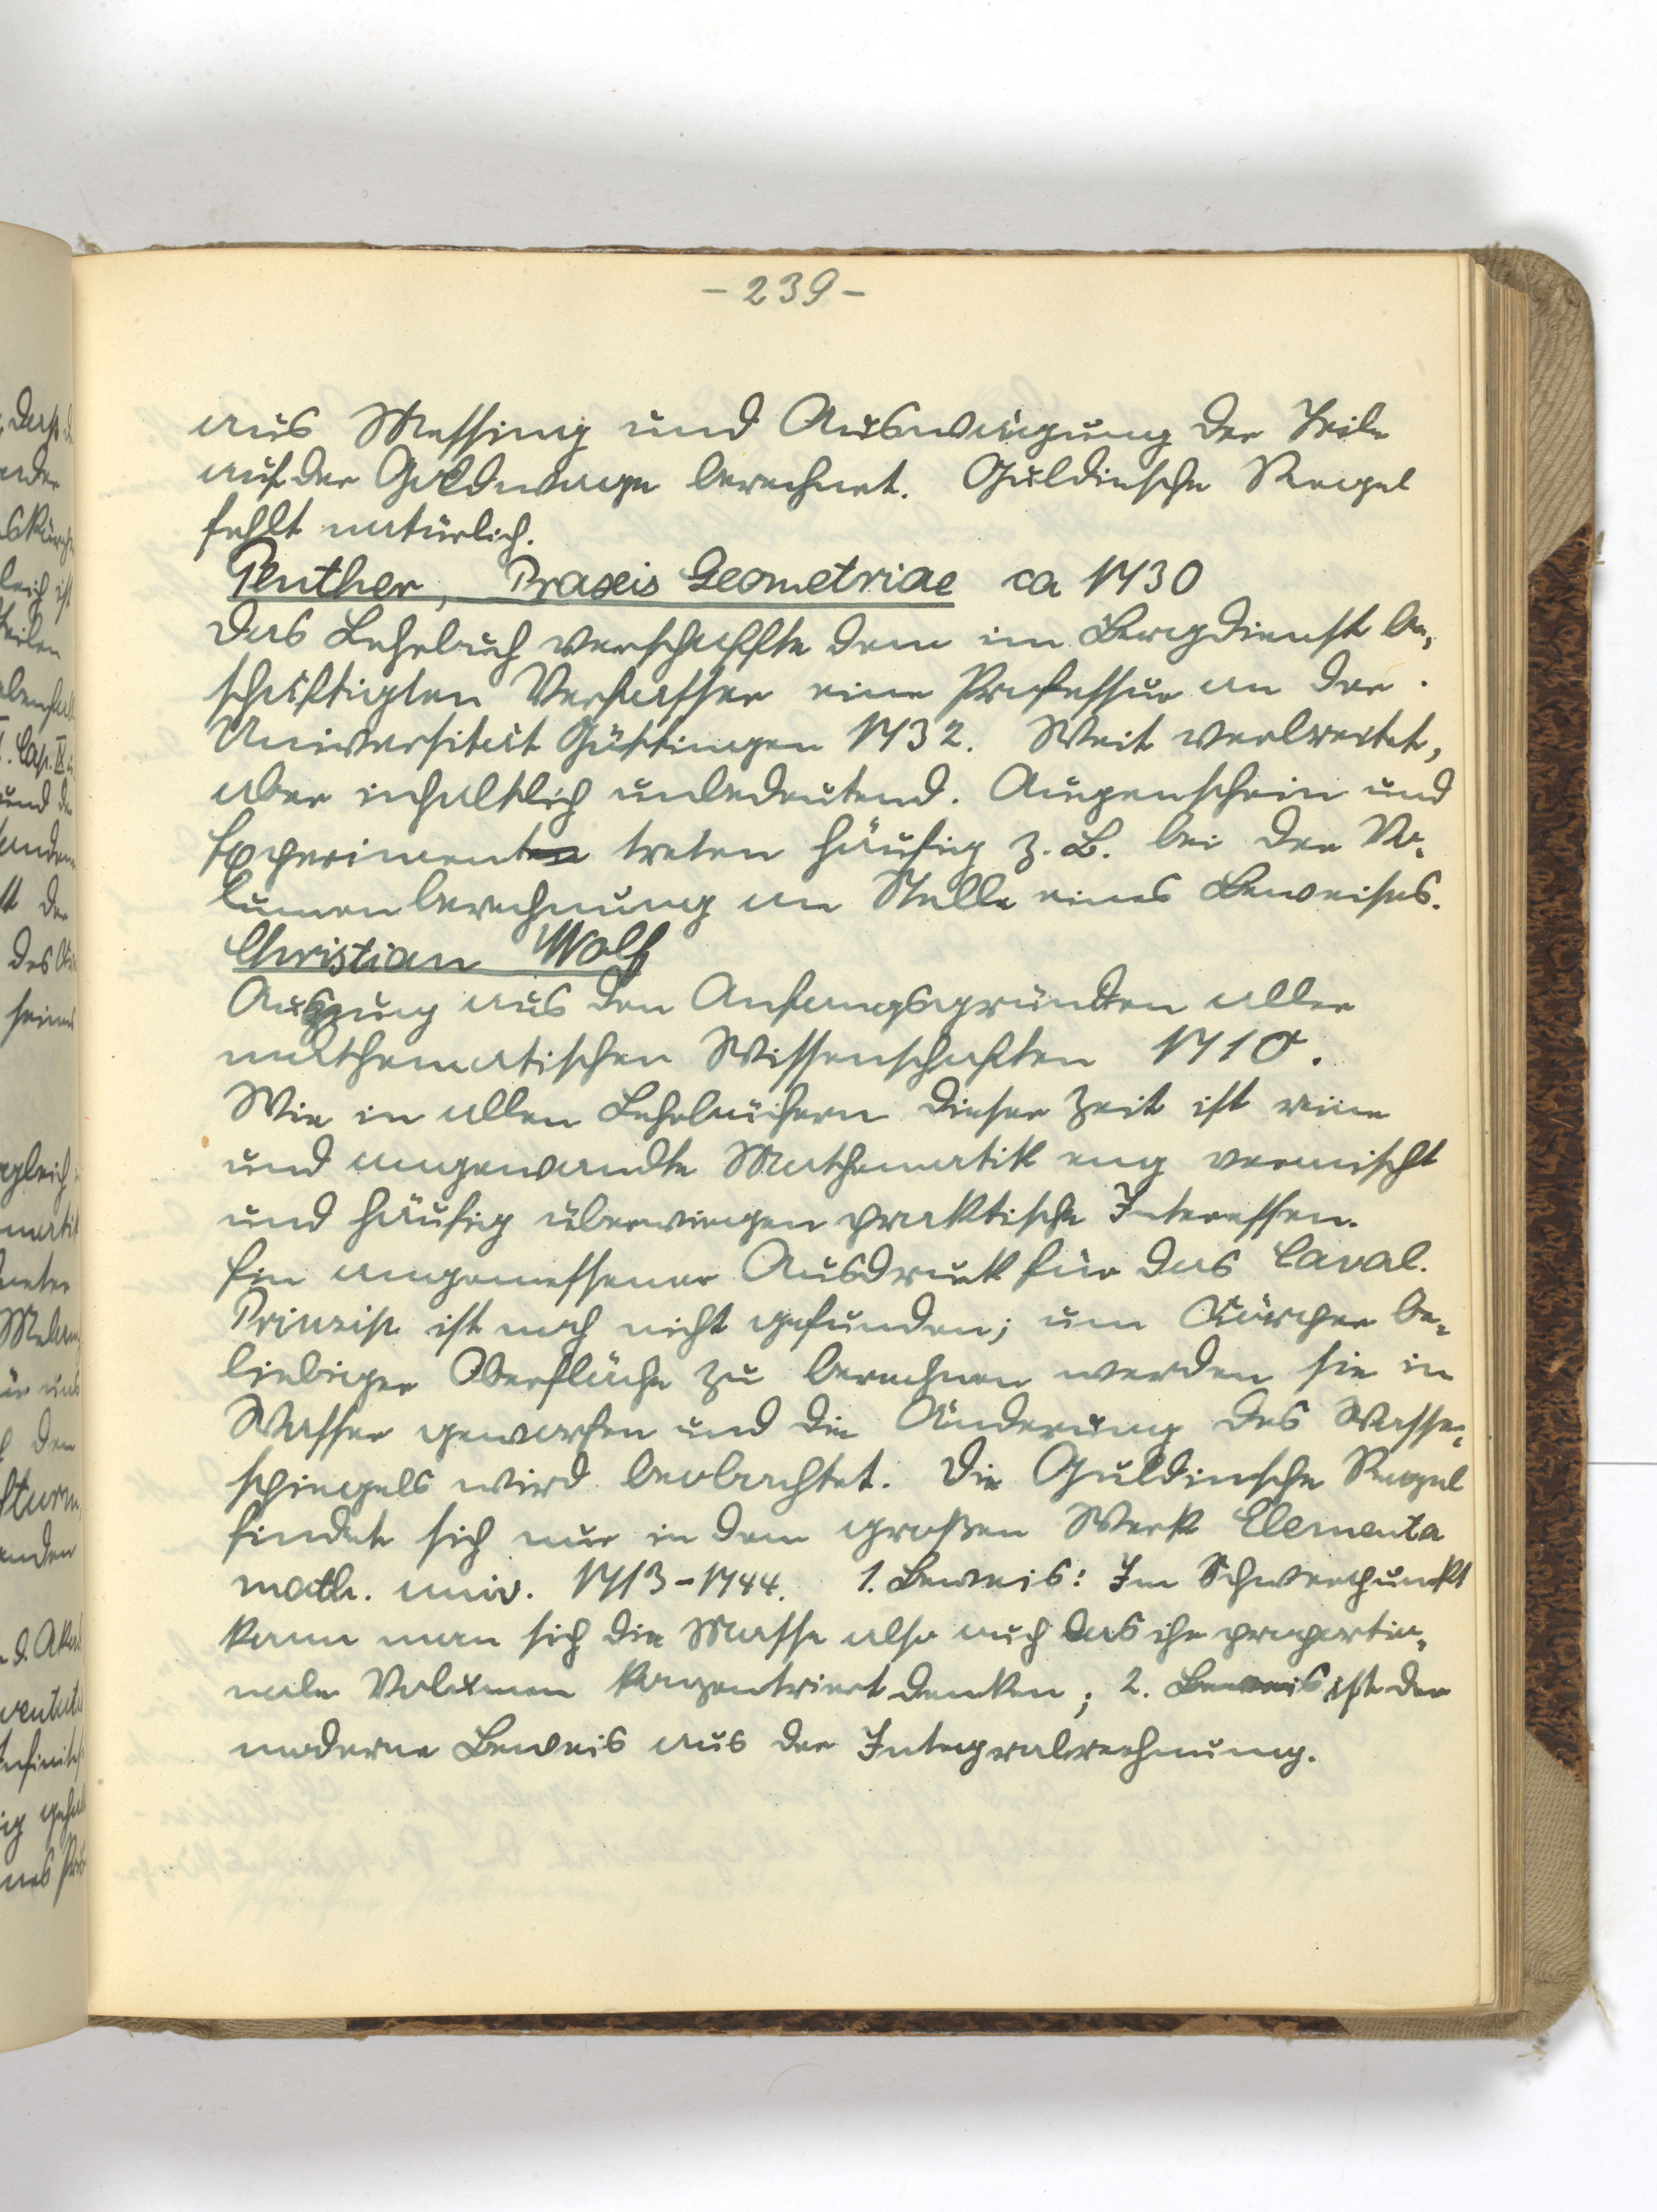 - 239 -
aus Messing und Auswägung der Teile
auf der Goldwage berechnet. Guldinsche Regel
fehlt natürlich.
Penther, Praxis Geometriae ca 1730
Das Lehrbuch verschaffte dem im Bergdienst be-
schäftigten Verfasser eine Professur an der
Universität Göttingen 1732. Weit verbreitet,
aber inhaltlich unbedeutend. Augenschein und
Experiment treten häufig z. B. bei der Vo-
lumenberechnung an Stelle eines Beweises.
Christian Wolf
Auszug aus den Anfangsgründen aller
mathematischen Wissenschaften 1710.
Wie in allen Lehrbüchern dieser Zeit ist reine
und angewandte Mathematik eng vermischt
und häufig überwiegen praktische Interessen.
Ein angemessener Ausdruck für das Caval.
Prinzip ist noch nicht gefunden; um Körper be-
liebiger Oberfläche zu berechnen werden sie in
Wasser geworfen und die Änderung des Wasser-
spiegels wird beobachtet. Die Guldinsche Regel
findet sich nur in dem großen Werk Elementa
math. univ. 1713-1744. 1. Beweis: Im Schwerpunkt
kann man sich die Masse also auch das ihr proportio-
nale Volumen konzentriert denken; 2. Beweis ist der
moderne Beweis aus der Integralrechnung.